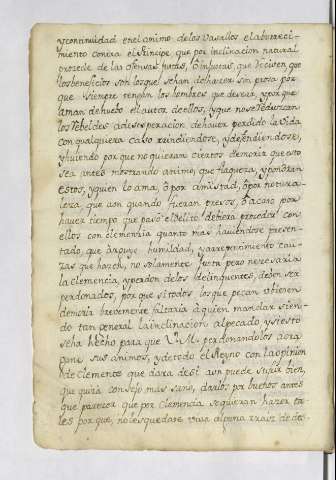 y continuidad en el animo de los Vasallos el aborreci-
miento contra el Principe, que por inclinacion natural
procede de las ofensas justas, ò injustas, que reciven que
los beneficios son los que se han de hacer sin prisa por
que siempre tengan los hombres que desear, y por que
aman de nuebo el autor de ellos, y que no se reduzcan
los rebeldes a desesperacion de haver perdido la vida
con qualquiera caso rindiendose, y defendiendose,
y huiendo por que no quieran ciertos de moria que esto
sea antes mostrando animo, que flaqueza, y
estos, y quien lo ama, ò por amistad, ò por natura-
leza, que aun quando fueran presos, ò acaso por
haver tiempo que pasò el delito debiera proceder con
ellos con clemencia quanto mas haviendose presen-
tado, que arguye humildad, y arrepentimiento cau-
zas que hacen, no solamente justa pero necesaria
la clemencia, y perdon de los delinquentes, deben ser
perdonados, por que si todos los que pecan
de moria brevemente faltaria à quien mandar sien-
do tan general la inclinacion al pecado, y si esto
se ha hecho para que V. M. perdonandolos aora
gane sus animos, y de todo el Reyno con la opinion
de Clemente que dara de si aun puede surtir bien,
que quiza consejo mas sano, darlos por buenos antes
que parecer que por clemencia se quieran hacer ta-
les por que, no les quedase viva alguna rraiz de des-